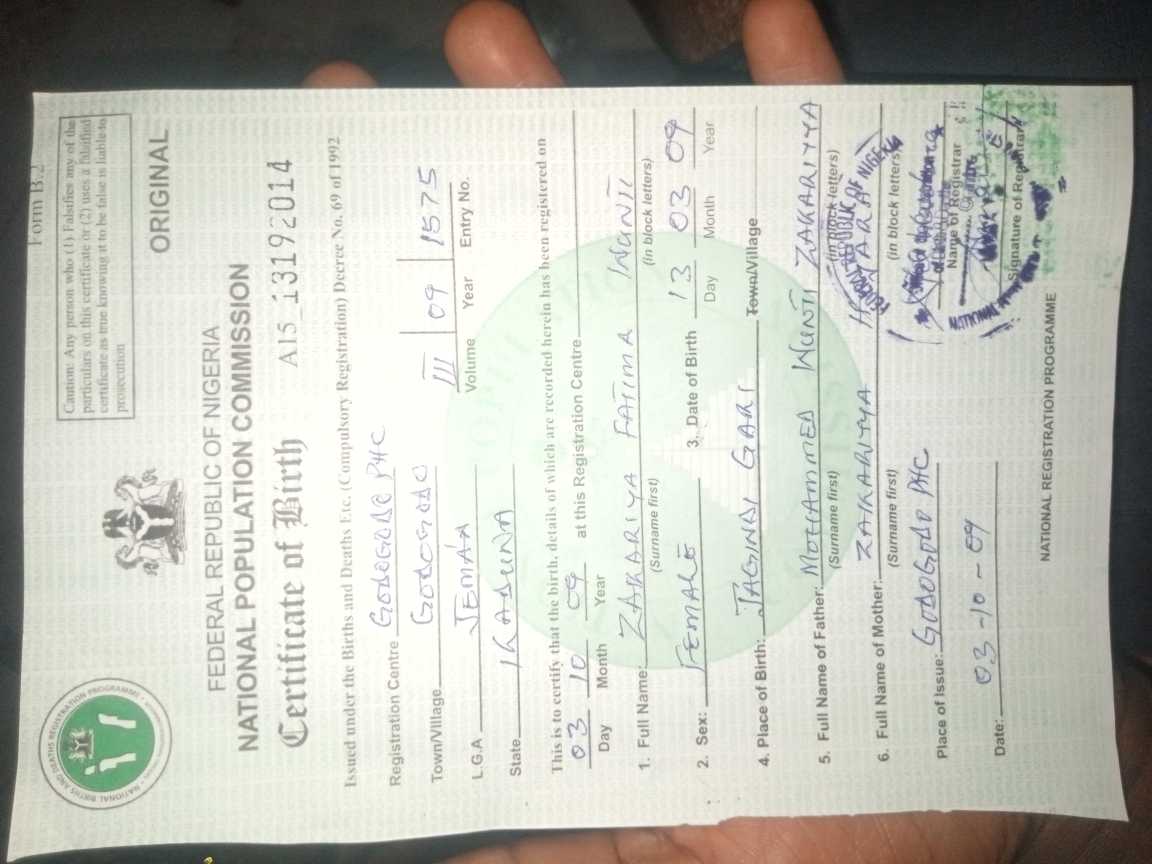 Form B.2
Caution: Any person who (1) Falsifies any of the
particulars on this certificate or (2) uses a falsified
certificate as true knowing it to be false is liable to
prosecution
NATIONAL BIRTHS AND DEATHS REGISTRATION PROGRAMME
ORIGINAL
FEDERAL REPUBLIC OF NIGERIA
NATIONAL POPULATION COMMISSION
Certificate of Birth
A15_13192014
Issued under the Births and Deaths Etc. (Compulsory Registration) Decree No. 69 of 1992
Registration Centre GODOGODO PHC III 09 1575
Volume Year Entry No.
Town/Village GODOGODO
L.G.A JEMA'A
State KADUNA
This is to certify that the birth, details of which are recorded herein has been registered on
03 10 09 at this Registration Centre
Day Month Year
1. Full Name: ZAKARIYA FATIMA WUNTI
(Surname first) (in block letters)
2. Sex: FEMALE 3. Date of Birth 13 03 09
Day Month Year
4. Place of Birth: JAGINDI GARI Town/Village
5. Full Name of Father: MOHAMMED WUNTI ZAKARIYYA
(Surname first) (in block letters)
6. Full Name of Mother: ZAKARIYYA
(Surname first) (in block letters)
FEDERAL REPUBLIC OF NIGERIA
Place of Issue: GODOGODO PHC
Name of Registrar
Date: 03-10-09
Signature of Registrar
NATIONAL REGISTRATION PROGRAMME